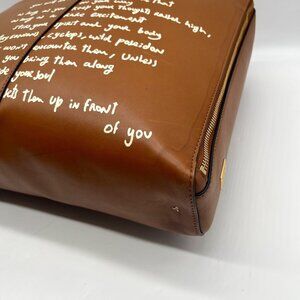 your way like that
your thoughts raised high,
a rare excitement
spirit and your body
cyclops, wild poseidon
won't encounter them, unless
you bring them along
your soul
sets them up in front
of you